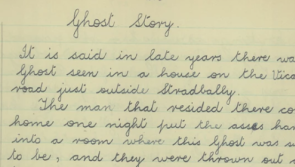 Ghost Story.
It is said in late years there was
Ghost seen in a house on the
road just outside Stradbally.
The man that resided there
home one night put the asses
into a room where this Ghost was
to be, and they were thrown out